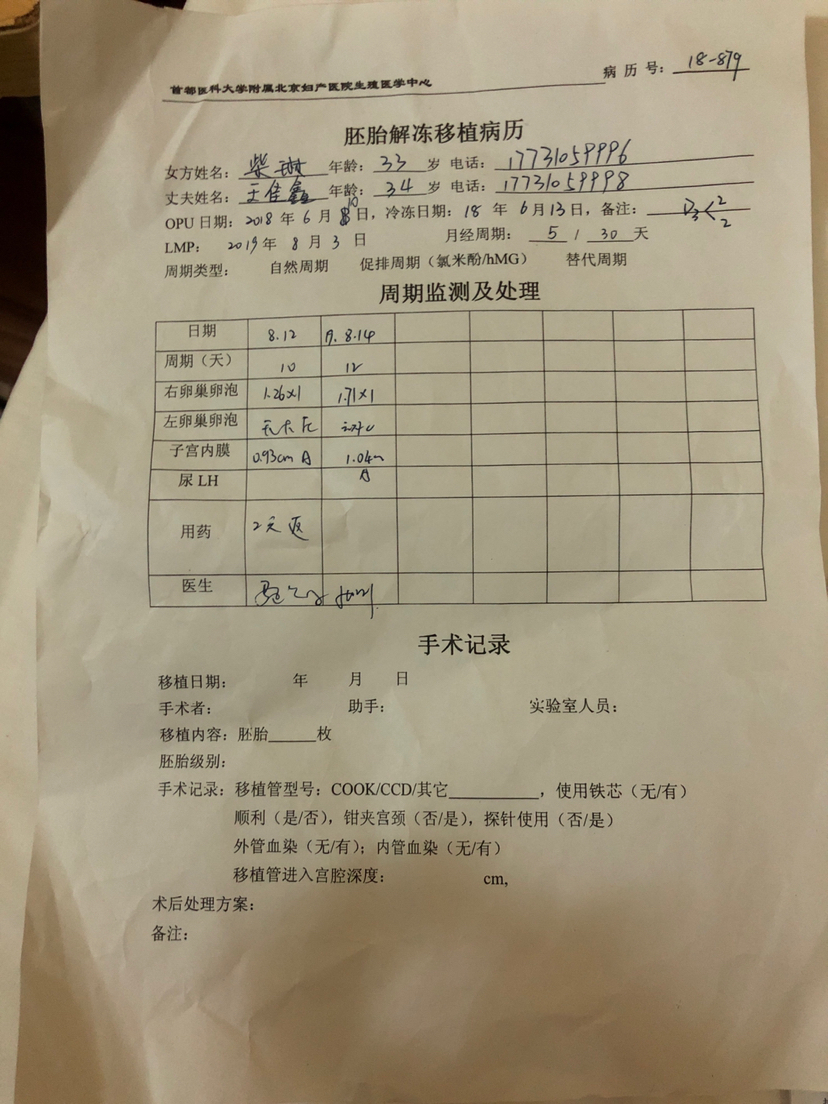 首都医科大学附属北京妇产医院生殖医学中心 病历号：18-879
胚胎解冻移植病历
女方姓名：柴琳 年龄：33 岁 电话：17731059996
丈夫姓名：王佳鑫 年龄：34 岁 电话：17731059998
OPU 日期：2018 年 6 月 10 日，冷冻日期：18 年 6 月 13 日，备注：D3 2 2
LMP： 2019 年 8 月 3 日 月经周期：5 / 30 天
周期类型： 自然周期 促排周期（氯米酚/hMG） 替代周期
周期监测及处理
日期 8.12 8.14
周期（天） 10 12
右卵巢卵泡 1.26×1 1.71×1
左卵巢卵泡 无大
子宫内膜 0.93cm A 1.04 A
尿 LH
用药 2天返
医生
手术记录
移植日期： 年 月 日
手术者： 助手： 实验室人员：
移植内容：胚胎______枚
胚胎级别：
手术记录：移植管型号：COOK/CCD/其它____________，使用铁芯（无/有）
顺利（是/否），钳夹宫颈（否/是），探针使用（否/是）
外管血染（无/有）；内管血染（无/有）
移植管进入宫腔深度： cm,
术后处理方案：
备注：